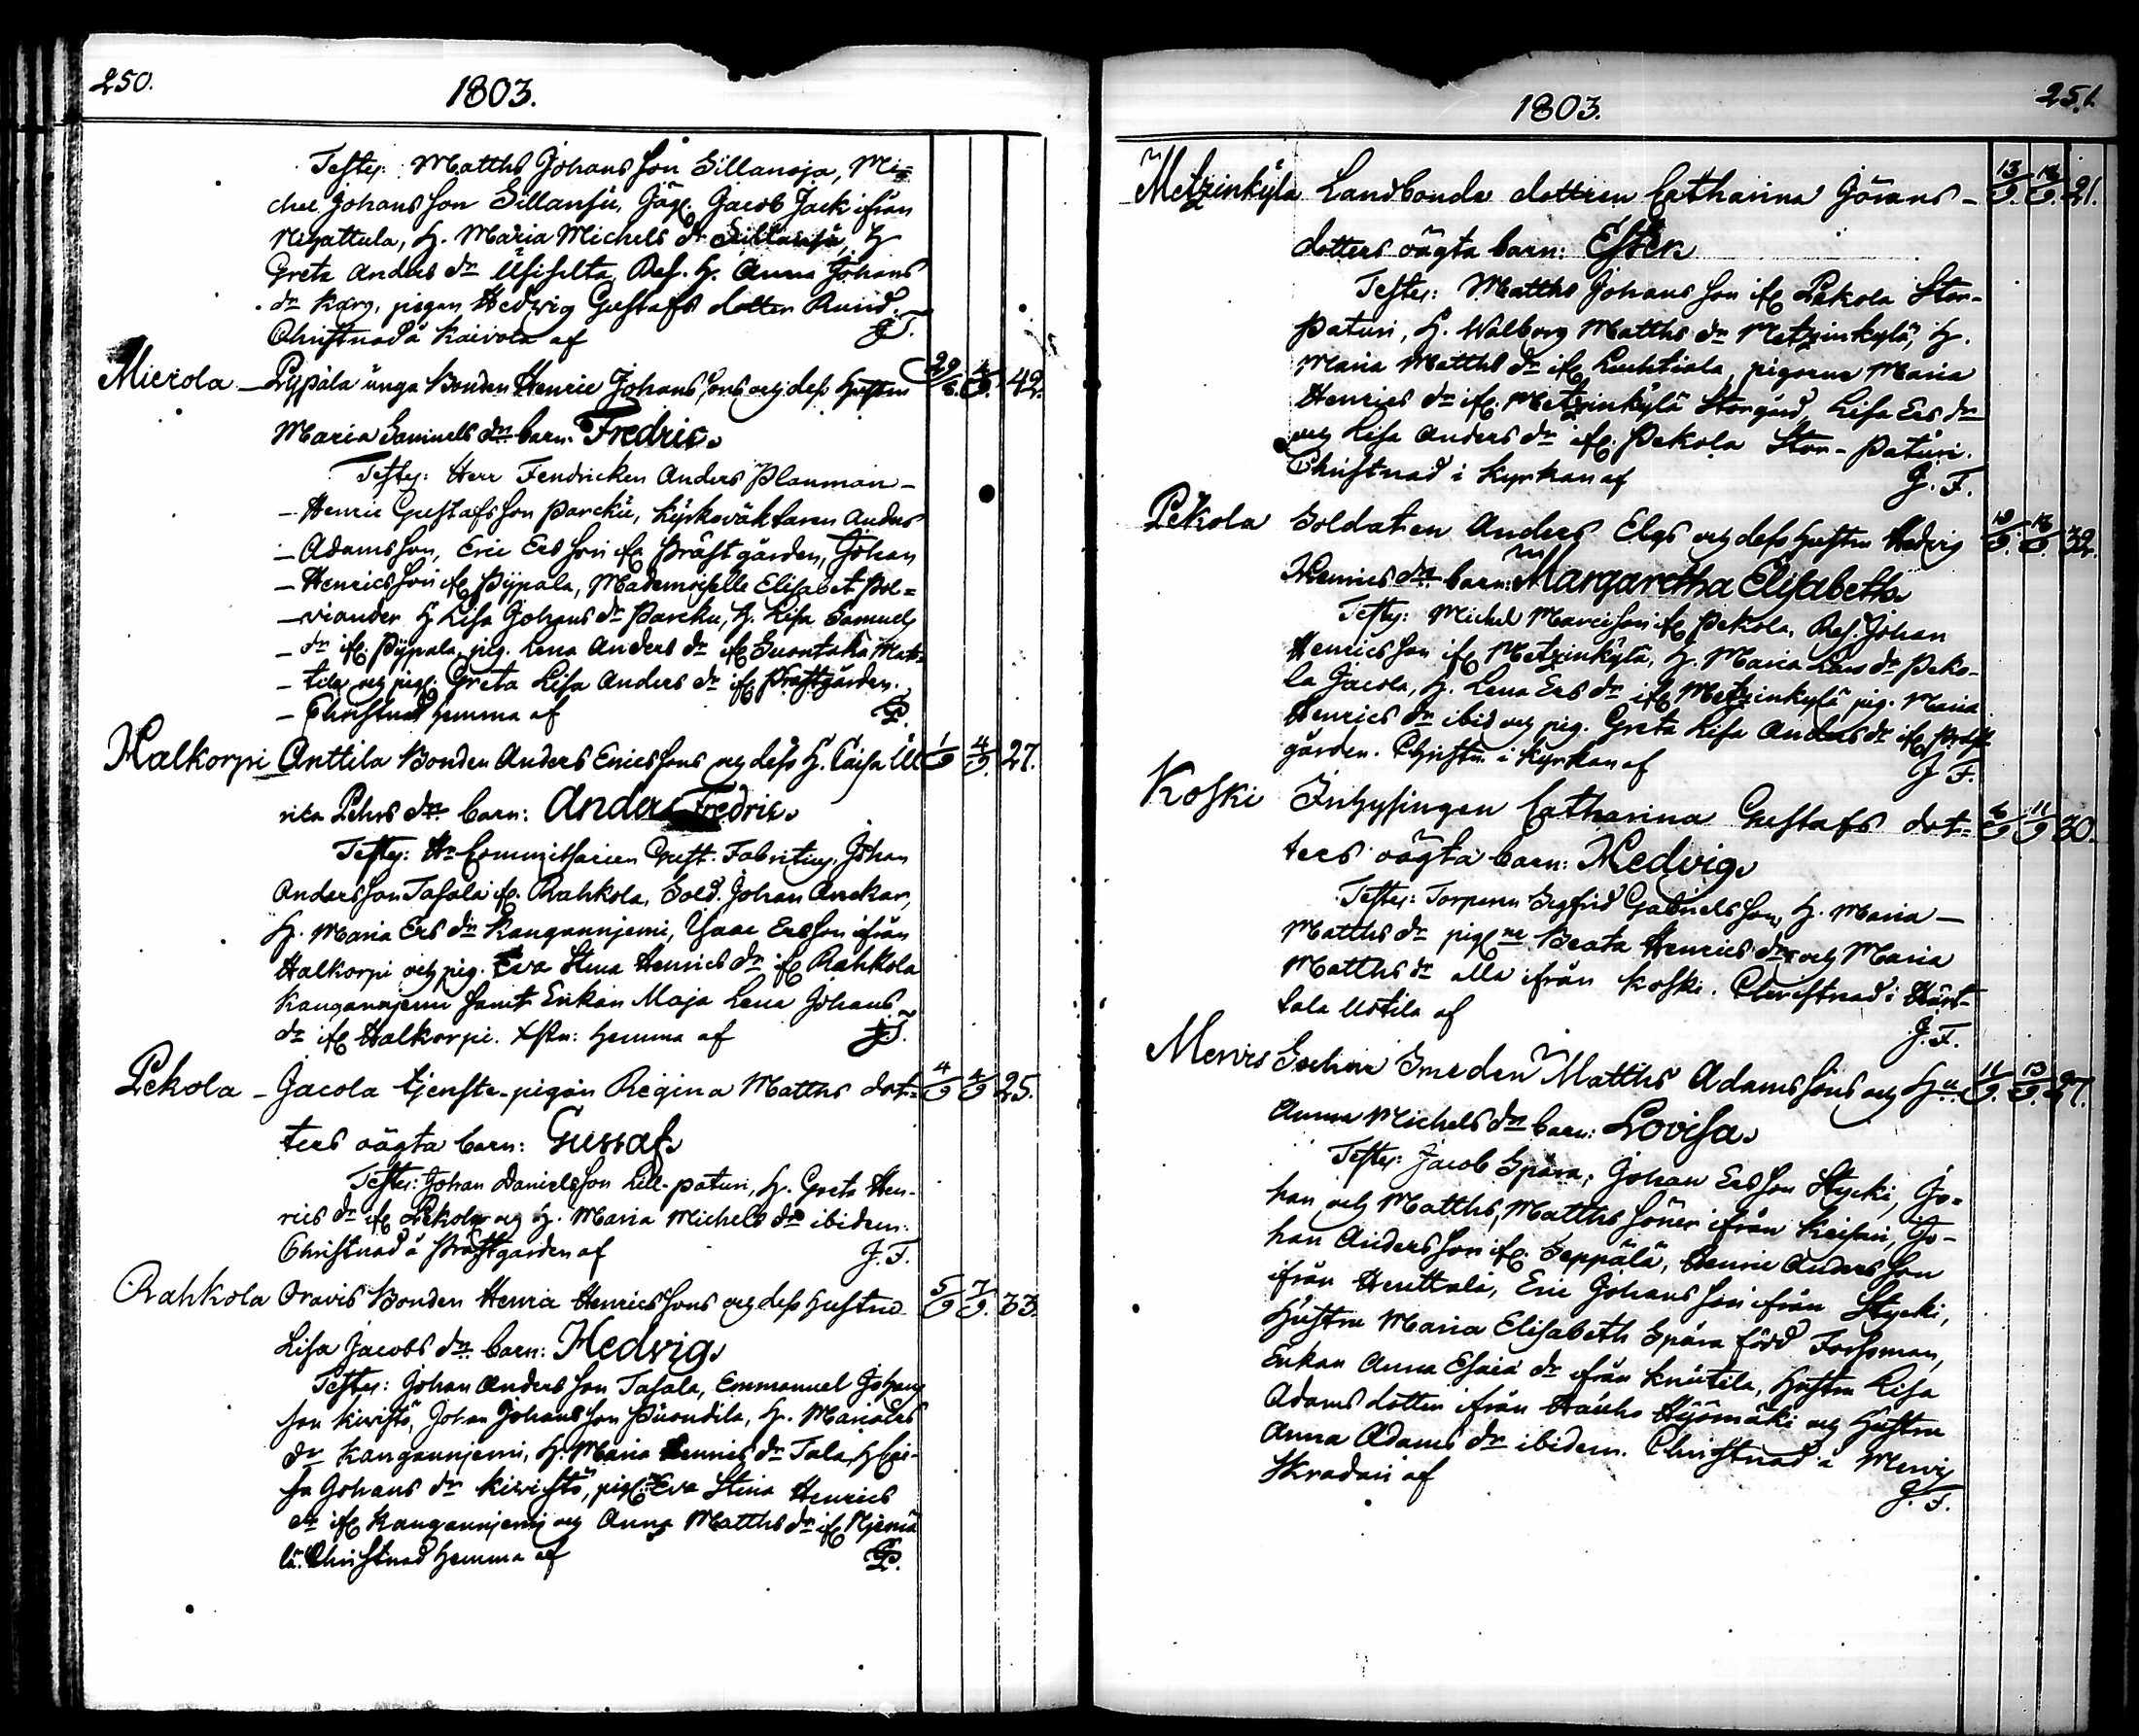 250.
1803.
Testes: Matths Johansson Sillanoja, Mi=
chel Johansson Sillansu, Jäg. Jacob Jack ifrån
H. Maria Michels dr
Greta Anders dr H. Anna Johans
dr Karg, pigan Hedvig Gustafs dotter Rund.
Christnad å Kaivola af J.F.
Mierola Pypälä unga Bonden Henric Johanssons och dess Hustru 29/8. 4/9. 42.
Maria Samuels dr barn: Fredric.
Testes: Herr Fendricken Anders Planman
Henric Gustafsson Parcku, Kyrkoväktaren Anders
Adamsson, Eric Ersson if. Prästgården, Johan
Henricsson if. Pypälä, Mademoiselle Elisabet Pol=
viander H. Lisa Johans dr Parcku, H. Lisa Samuels
dr if. Pypälä, pig. Lena Anders dr if. Suontaka Mat=
tila och pig. Greta Lisa Anders dr if. Prästgården.
Christnad hemma af
Halkorpi Anttila Bonden Anders Ericssons och dess H. Caisa Ul 1/9 4/9. 27.
rica Pehrs dr barn: Anders Fredric.
Testes: Hr Commissarien Gust. Fabritius, Johan
Andersson Tasala if. Rahkola, Sold. Johan Anckar,
H. Maria Ers dr Kangannjemi, Isaac Ersson ifrån
Halkorpi och pig. Eva Stina Henrics dr if. Rahkola
Kangannjemi samt Enkan Maja Lena Johans
dr if. Halkorpi. Xstn: hemma af J.F.
Pekola Jacola tjenste-pigan Regina Matths dot= 4/9 4/9 25.
ters oägta barn: Gustaf.
Testes: Johan Danielsson Lill-paturi, H. Greta Hen-
rics dr if. Pekola och H. Maria Michels dr ibidem.
Christnad å Prästgården af J.F.
Rahkola Oravis Bonden Henric Henricssons och dess hustru 5/9 7/9. 33.
Lisa Jacobs dr barn: Hedvig.
Testes: Johan Andersson Tasala, Emmanuel Johans
son Kivistö, Johan Johansson Puondila, H. Maria Ers
dr Kangannjemi, H. Maria Henrics dr Tala, H. Cai-
sa Johans dr Kivistö, pig. Eva Stina Henrics
dr if. Kangannjemi och Anna Matths dr if. Njemä
lä. Christnad hemma af
251.
1803.
Metzinkylä Landbonde dottren Catharina Görans- 13/9. 18/9. 21.
dotters oägta barn: Ester
Testes: Matths Johansson if. Pekola Stor-
Paturi, H. Walborg Matths dr Metzinkylä, H.
Maria Matths dr if. Luhtiala, pigorne Maria
Henrics dr if. Metzinkylä Storgård, Lisa Ers dr
och Lisa Anders dr if. Pekola Stor-Paturi.
Christnad i Kyrkan af J.F.
Pekola Soldaten Anders Elgs och dess hustru Hedvig 18/9. 32.
Henrics dr barn: Margaretha Elisabeth.
Testes: Michel Marcisson if. Pekola, Res. Johan
Henricsson if. Metzinkylä, H. Maria Lars dr Peko-
la Jacola, H. Lena Ers dr if. Metzinkylä pig. Maria
Henrics dr ibid och pig. Greta Lisa Anders dr if. Präst
gården. Christn. i Kyrkan af J.F.
Koski Inhysingen Catharina Gustafs dot= 6/9 11/9 30.
ters oägta barn: Hedvig.
Testes: Torparen Segfrid Gabrielsson, H. Maria
Matths dr pigne Beata Henrics dr och Maria
Matths dr alla ifrån Koski. Christnad i
tala Uotila af J.F.
Mervis Sochne Smeden Matths Adamssons och Hu 11/9. 13/9. 27.
Anna Michels dr barn: Lovisa.
Testes: Jacob Spåra, Johan Ersson Stycki, Jo=
han och Matths, Matths söner ifrån Keisari, Jo-
han Andersson if. Seppälä, Henric Andersson
ifrån Henttala, Eric Johansson ifrån Stycki,
Hustru Maria Elisabeth Spåra född Forssman,
Enkan Anna Esaiä dr ifrån Knutila, Hustru Lisa
Adamsdotter ifrån Hauho Hyömäki och Hustru
Anna Adams dr ibidem. Christnad å Mervis
Skradari af J.F.